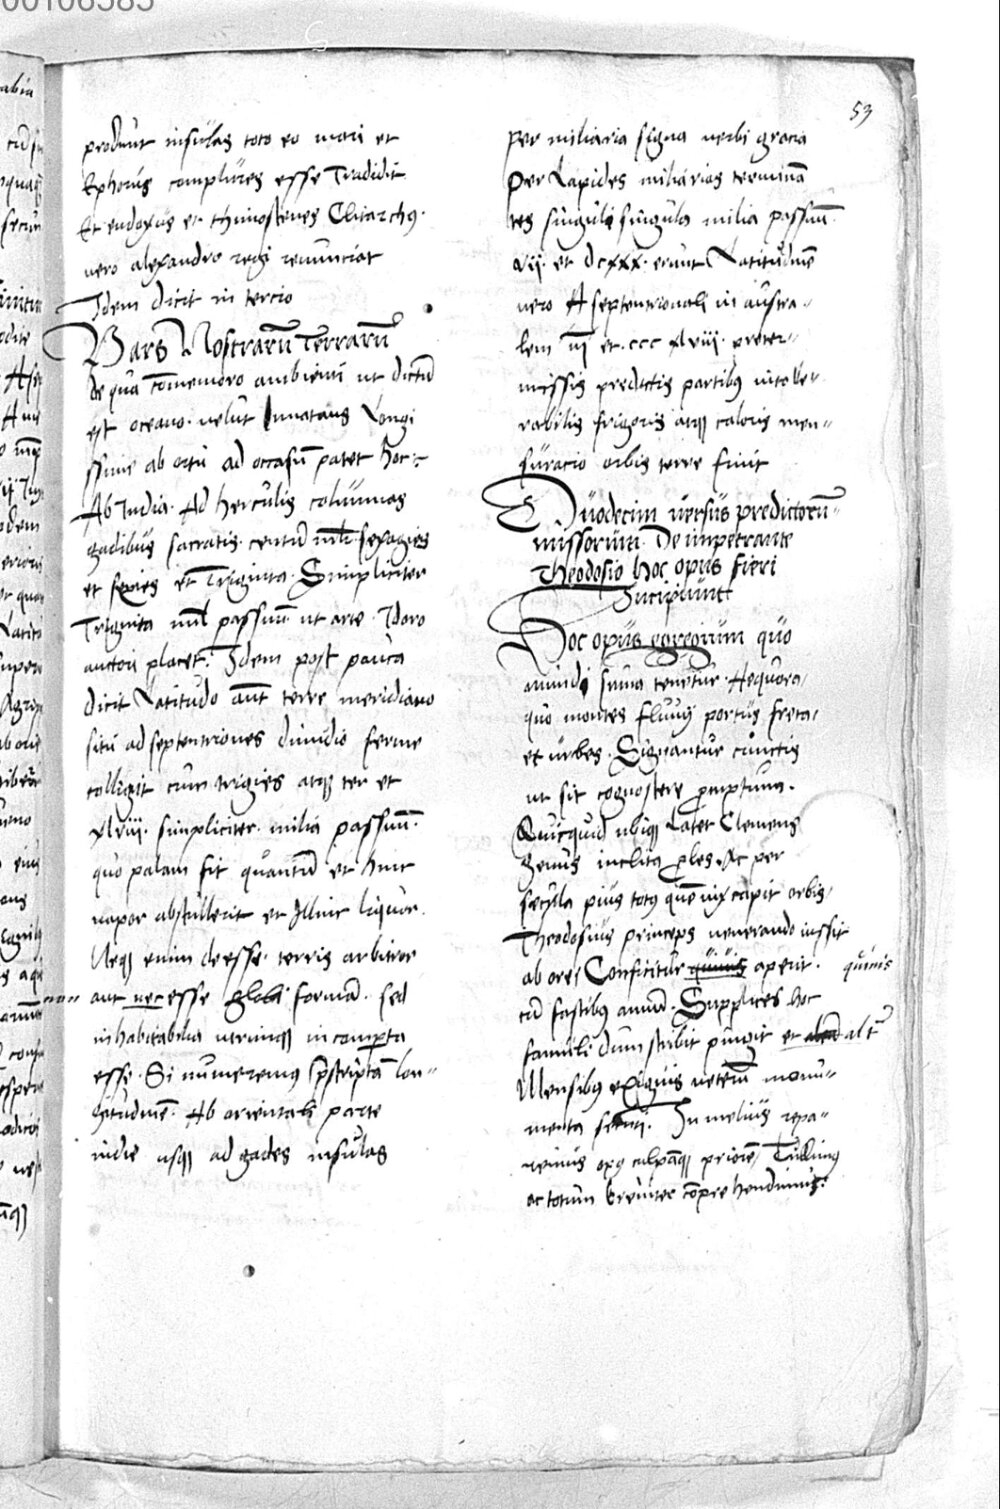 53
produnt insulas toto eo mari et
Ephorus complures esse Tradidit
Et eudoxus et thimostenes Clitarchus.
vero alexandro regi renunciat
Idem dicit in tercio
Pars Nostrarū Terrarū
de qua cōmemoro ambienti ut dictū
est oceano. velut Innatans Longi
ssime ab ortu ad occasum patet hoc:
Ab India. Ad herculis columnas
gadibus sacratis. centū milī sexagies
et sexies et Triginta. Simpliciter
Triginta mīl passuū. ut arte. Idoro
auctori placet. Idem post pauca
dicit Latitudo aūt terre meridiano
situ ad septentriones dimidio ferme
colligit cum trigies atq ter et
xlviii. simpliciter. milia passuū.
quo palam fit quantū et hinc
vapor abstullerit et Illinc liquor.
Neq enim deesse. terris arbitror
aut nec esse globi formā. sed
inhabitabilia utrimq incomperta
esse. Si numeremus sp̄scriptā lon-
gitudinē. Ab orientali parte
indie usq ad gades insulas
per miliaria signa verbi gracia
per Lapides miliarios terminā
tes singuli singula milia passuū.
vii. et dcxxx. erunt Latitudinē
vero A septentrionali in austra-
lem iii et. ccc xlviii. preter-
missis predictis partibus intolle-
rabilis frigoris atq caloris men-
suracio orbis terre finit
Duodecim versus predictorū
missorum. De imperante
Theodosio hoc opus fieri
Incipiunt
Hoc opus egregium quo
mundi suma tenetur. Aequora
quo montes fluvij portus freta
et urbes. Signantur cunctis
ut sit cognoscere promptum.
Quicquid ubiq Latet Clemens
genus inclita ples Ac per
secula pius totus quē vix capit orbis
Theodosius princeps venerando iussit
ab ore Conficitur quinis aperit. quinis
cū fastibus annū. Supplices hoc
famuli dum scribit pingit et alter
Mensibus exiguis veterū monu-
menta secuti. In melius repa-
ravimus opus culpāq priorē Tullimus
ac totum breviter cōprehendimus.